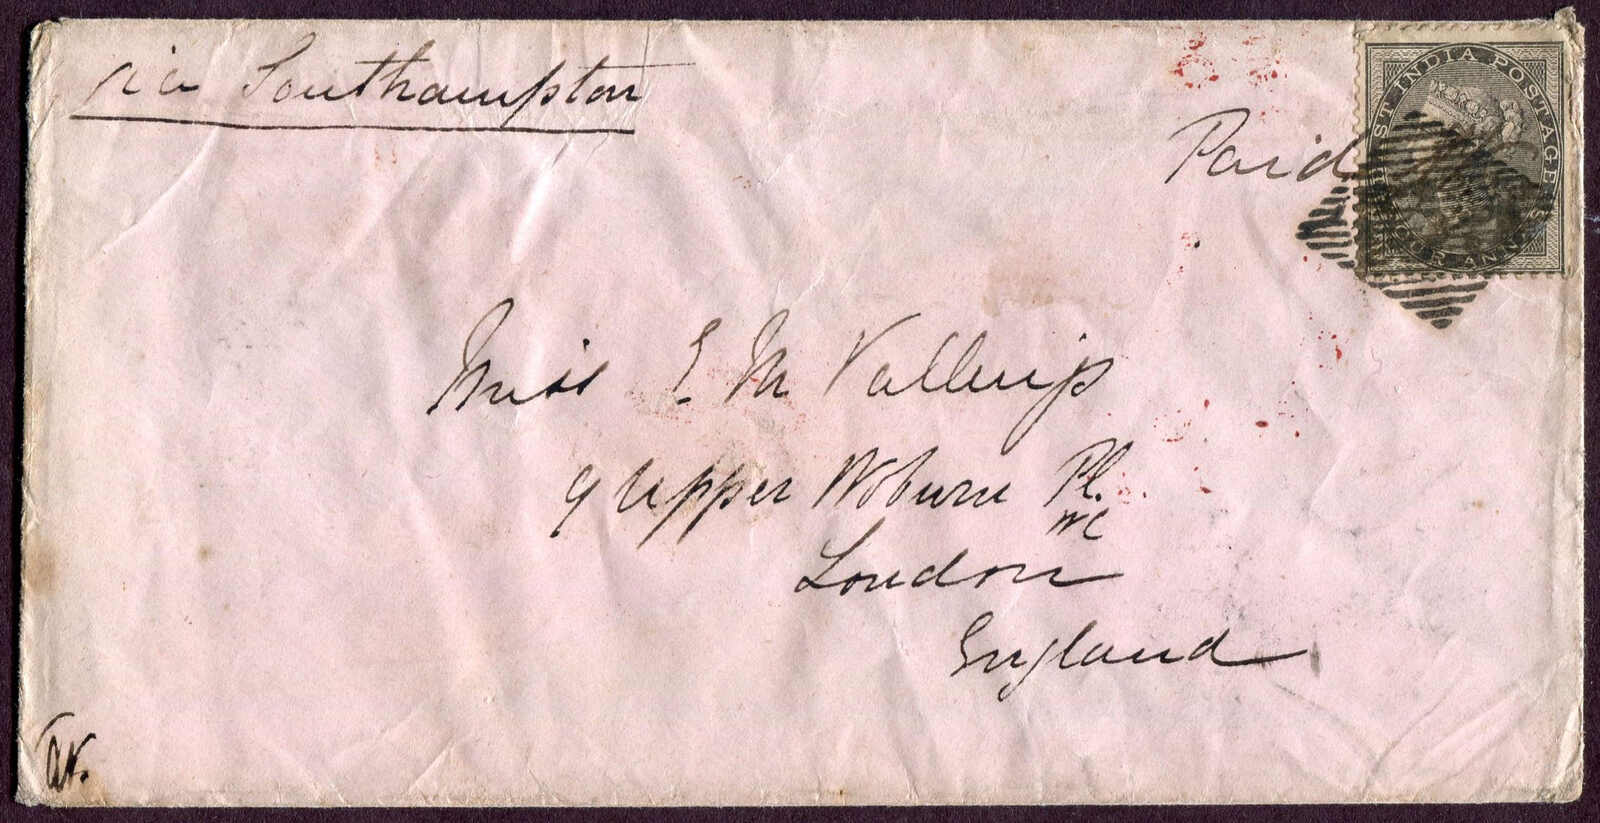 via Southampton
EAST INDIA POSTAGE
Paid
FOUR ANNAS
Miss E M Vallings
9 Upper Woburn Pl.
WC
London
England